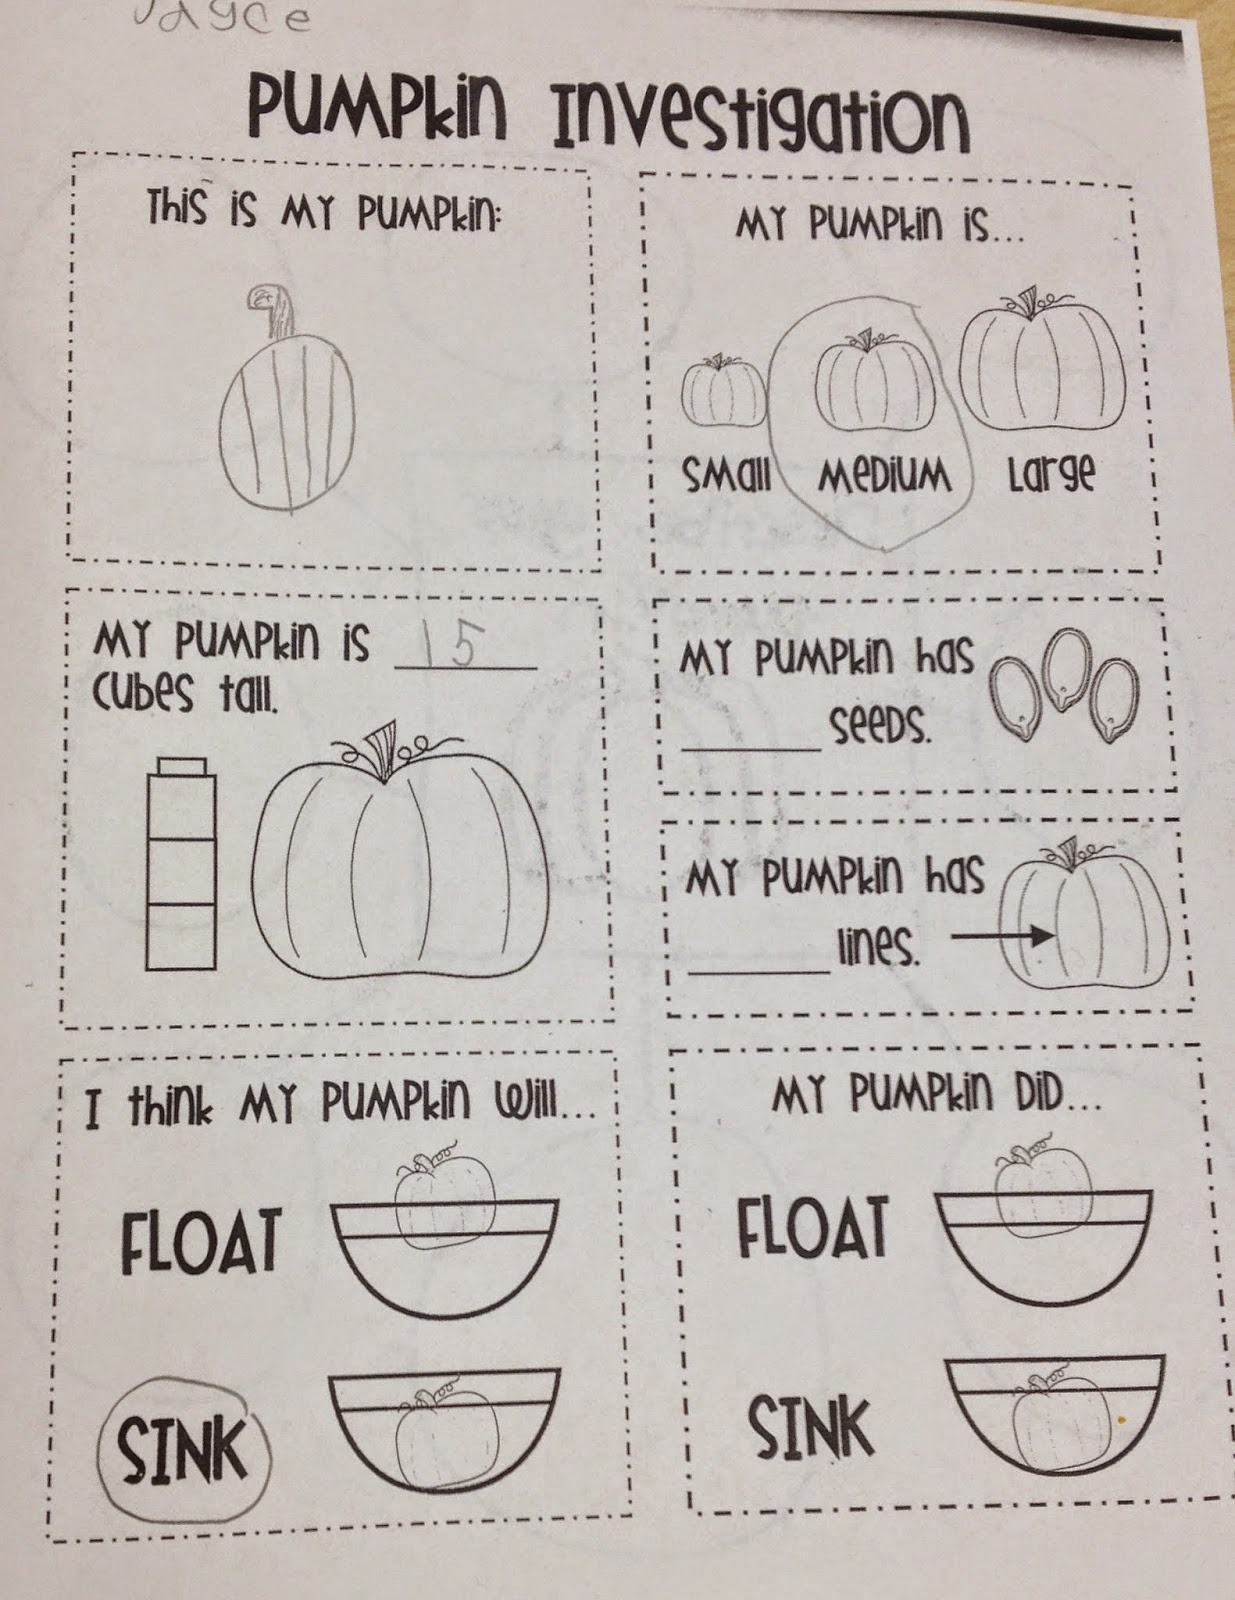 Jayce
Pumpkin Investigation
This is my pumpkin:
My pumpkin is...
Small Medium Large
My pumpkin is 15
cubes tall.
My pumpkin has
______ seeds.
My pumpkin has
______ lines.
I think my pumpkin will...
FLOAT
SINK
My pumpkin did...
FLOAT
SINK